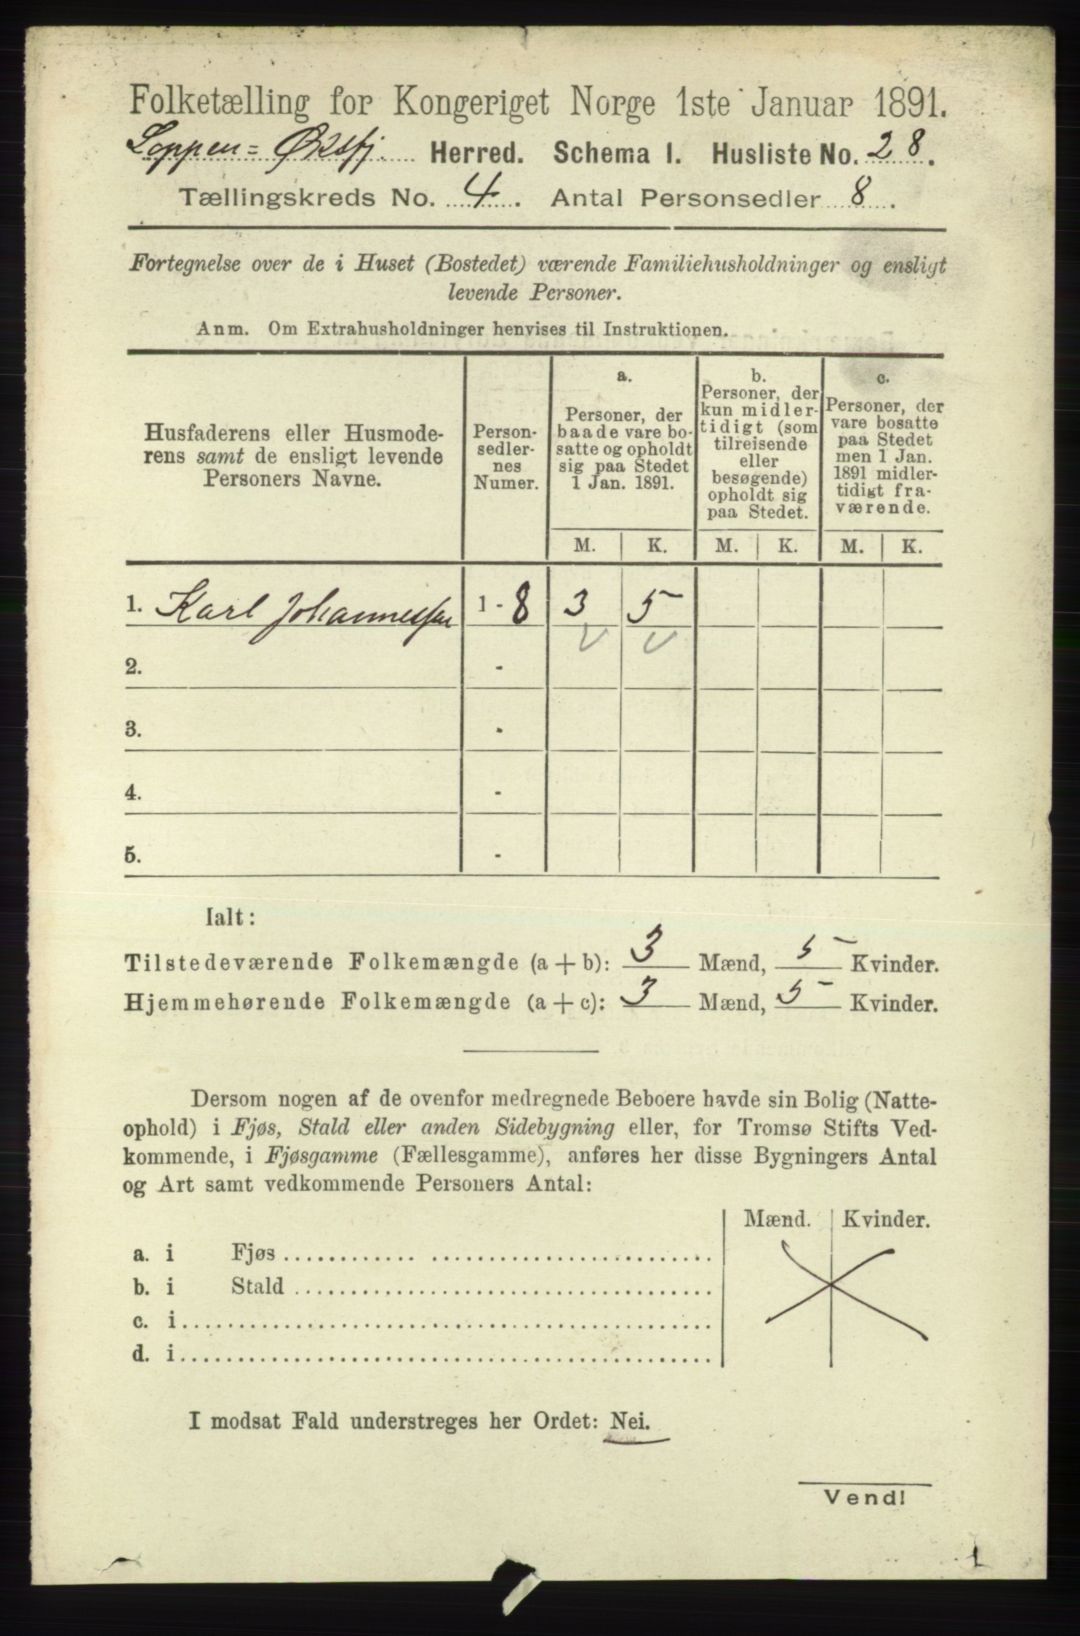 Folketælling for Kongeriget Norge 1ste Januar 1891.
Loppen=Øksfj. Herred. Schema I. Husliste No. 28.
Tællingskreds No. 4. Antal Personsedler 8.
Fortegnelse over de i Huset (Bostedet) værende Familiehusholdninger og ensligt
levende Personer.
Anm. Om Extrahusholdninger henvises til Instruktionen.
Husfaderens eller Husmode-
rens samt de ensligt levende
Personers Navne.
Person-
sedler-
nes
Numer.
a.
Personer, der
baade vare bo-
satte og opholdt
sig paa Stedet
1 Jan. 1891.
b.
Personer, der
kun midler-
tidigt (som
tilreisende
eller
besøgende)
opholdt sig
paa Stedet.
c.
Personer, der
vare bosatte
paa Stedet
men 1 Jan.
1891 midler-
tidigt fra-
værende.
M. K. M. K. M. K.
1. Karl Johannessen 1 - 8 3 5
2. -
3. -
4. -
5. -
Ialt:
Tilstedeværende Folkemængde (a + b): 3 Mænd, 5 Kvinder.
Hjemmehørende Folkemængde (a + c): 3 Mænd, 5 Kvinder.
Dersom nogen af de ovenfor medregnede Beboere havde sin Bolig (Natte-
ophold) i Fjøs, Stald eller anden Sidebygning eller, for Tromsø Stifts Ved-
kommende, i Fjøsgamme (Fællesgamme), anføres her disse Bygningers Antal
og Art samt vedkommende Personers Antal:
Mænd. Kvinder.
a. i Fjøs
b. i Stald
c. i
d. i
I modsat Fald understreges her Ordet: Nei.
Vend!